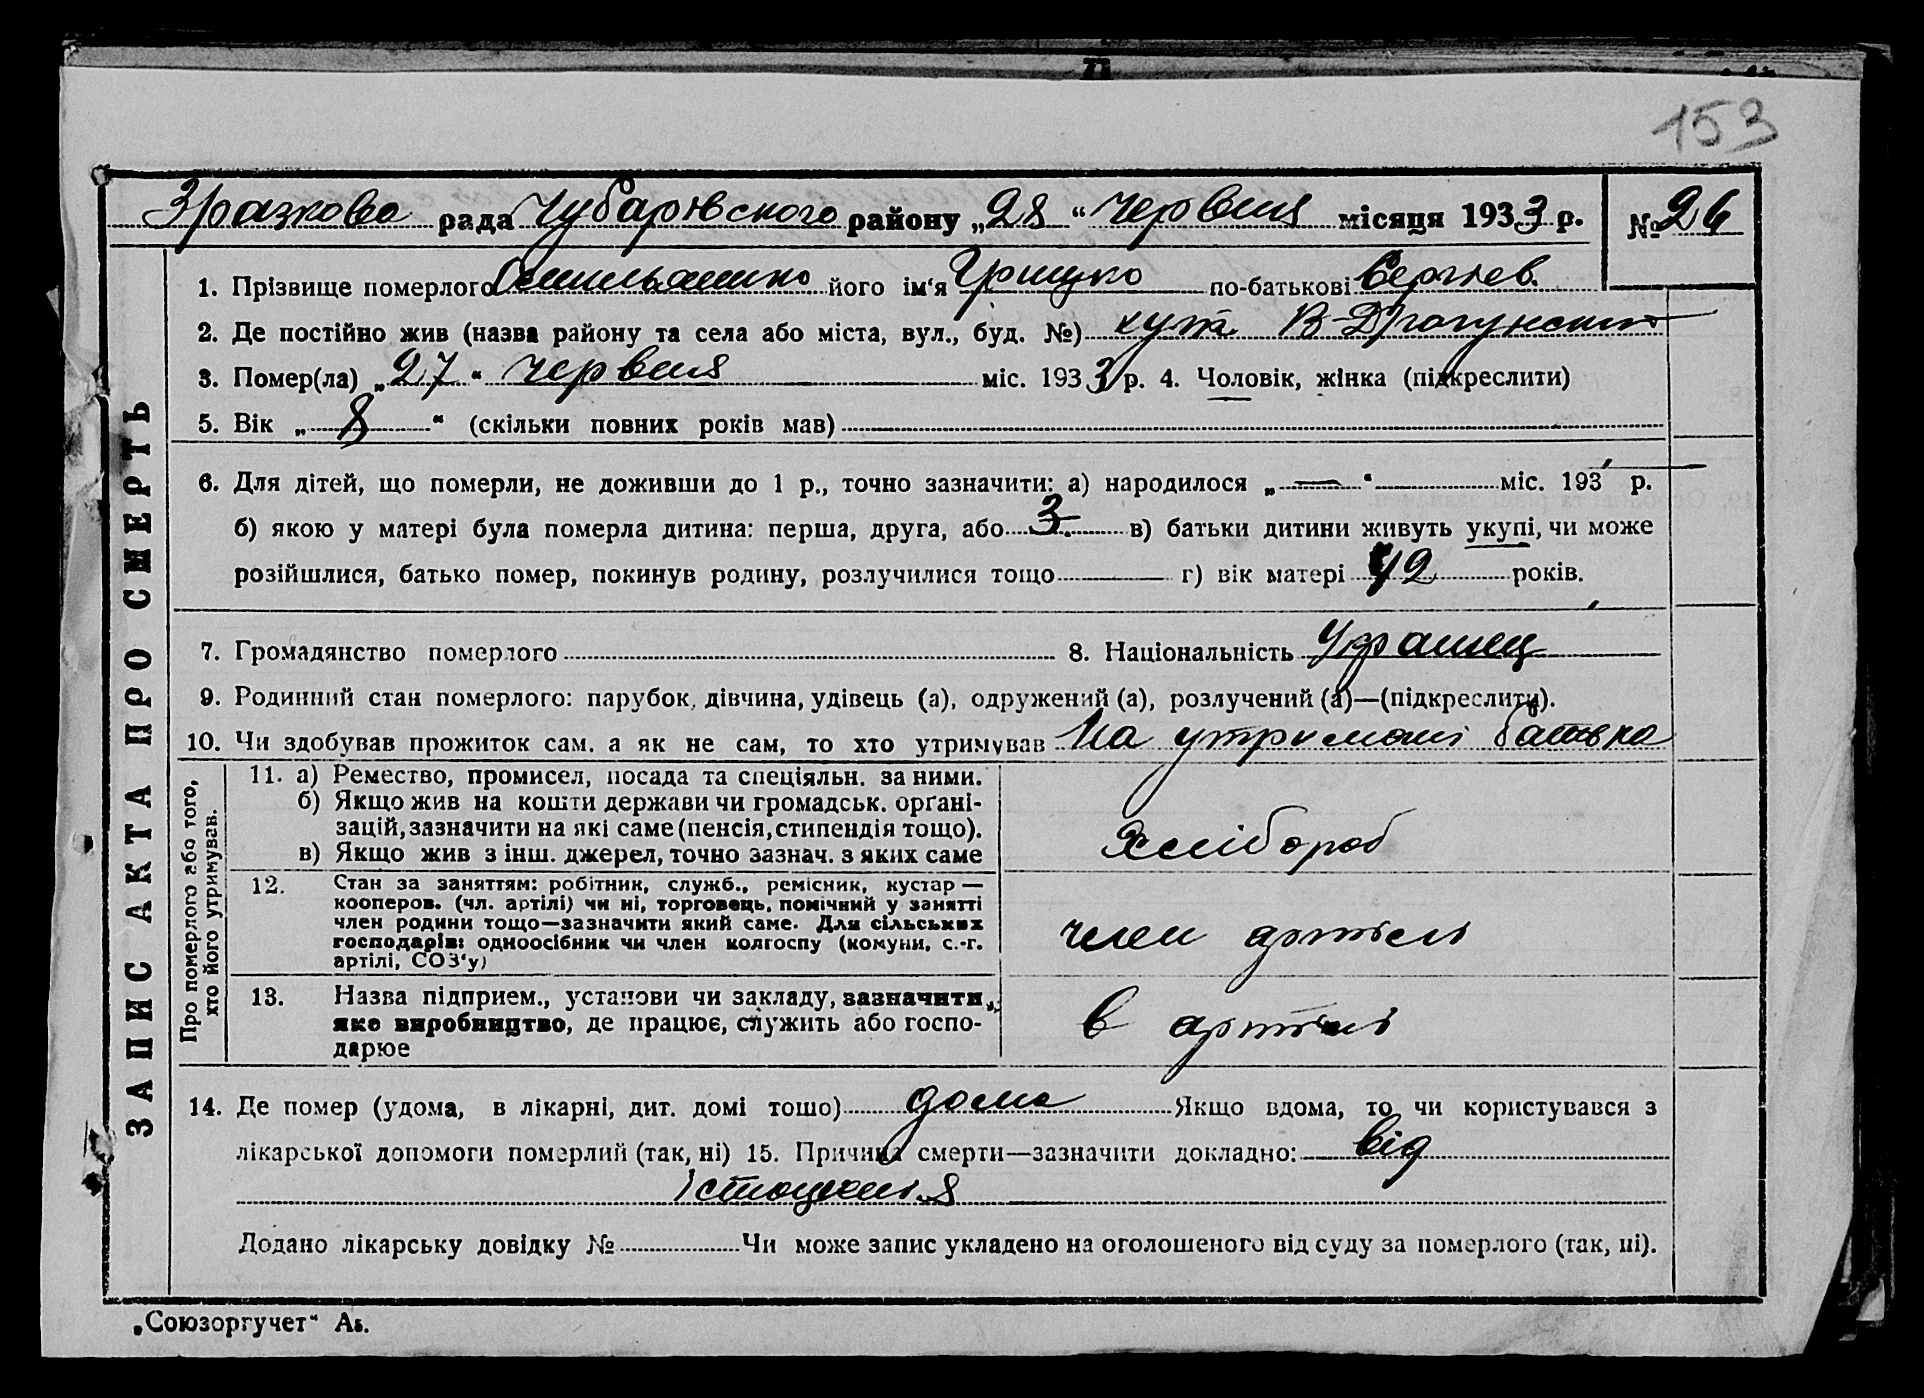 153
Зразкова рада Чубарівского району „28“ червня місяця 1933 р. № 26
ЗАПИС АКТА ПРО СМЕРТЬ
1. Прізвище померлого Омильяненко його ім‘я Грицко по-батькові Сергієв.
2. Де постійно жив (назва району та села або міста, вул., буд. №) хут. В-Драгунский
3. Помер(ла) „27“ червня міс. 1933 р. 4. Чоловік, жінка (підкреслити)
5. Вік „8“ (скільки повних років мав)
6. Для дітей, що померли, не доживши до 1 р., точно зазначити: а) народилося „—“ міс. 193 р.
б) якою у матері була померла дитина: перша, друга, або 3. в) батьки дитини живуть укупі, чи може
розійшлися, батько помер, покинув родину, розлучилися тощо г) вік матері 42 років.
7. Громадянство померлого 8. Національність Украинец
9. Родинний стан померлого: парубок, дівчина, удівець (а), одружений (а), розлучений (а)—(підкреслити).
10. Чи здобував прожиток сам, а як не сам, то хто утримував На утримані батька
Про померлого або того, хто його утримував.
11. а) Ремество, промисел, посада та спеціяльн. за ними.
б) Якщо жив на кошти держави чи громадськ. орґані-
зацій, зазначити на які саме (пенсія, стипендія тощо).
в) Якщо жив з інш. джерел, точно зазнач. з яких саме
Хлібороб
12. Стан за заняттям: робітник, служб., ремісник, кустар —
кооперов. (чл. артілі) чи ні, торговець, помічний у занятті
член родини тощо—зазначити який саме. Для сільських
господарів: одноосібник чи член колгоспу (комуни, с.-г.
артілі, СОЗ‘у)
член артелі
13. Назва підприєм., установи чи закладу, зазначити,
яке виробництво, де працює, служить або госпо-
дарює
в артілі
14. Де помер (удома, в лікарні, дит. домі тошо) дома Якщо вдома, то чи користувався з
лікарської допомоги померлий (так, ні) 15. Причина смерти—зазначити докладно: від
істощенія
Додано лікарську довідку № Чи може запис укладено на оголошеного від суду за померлого (так, ні).
„Союзоргучет“